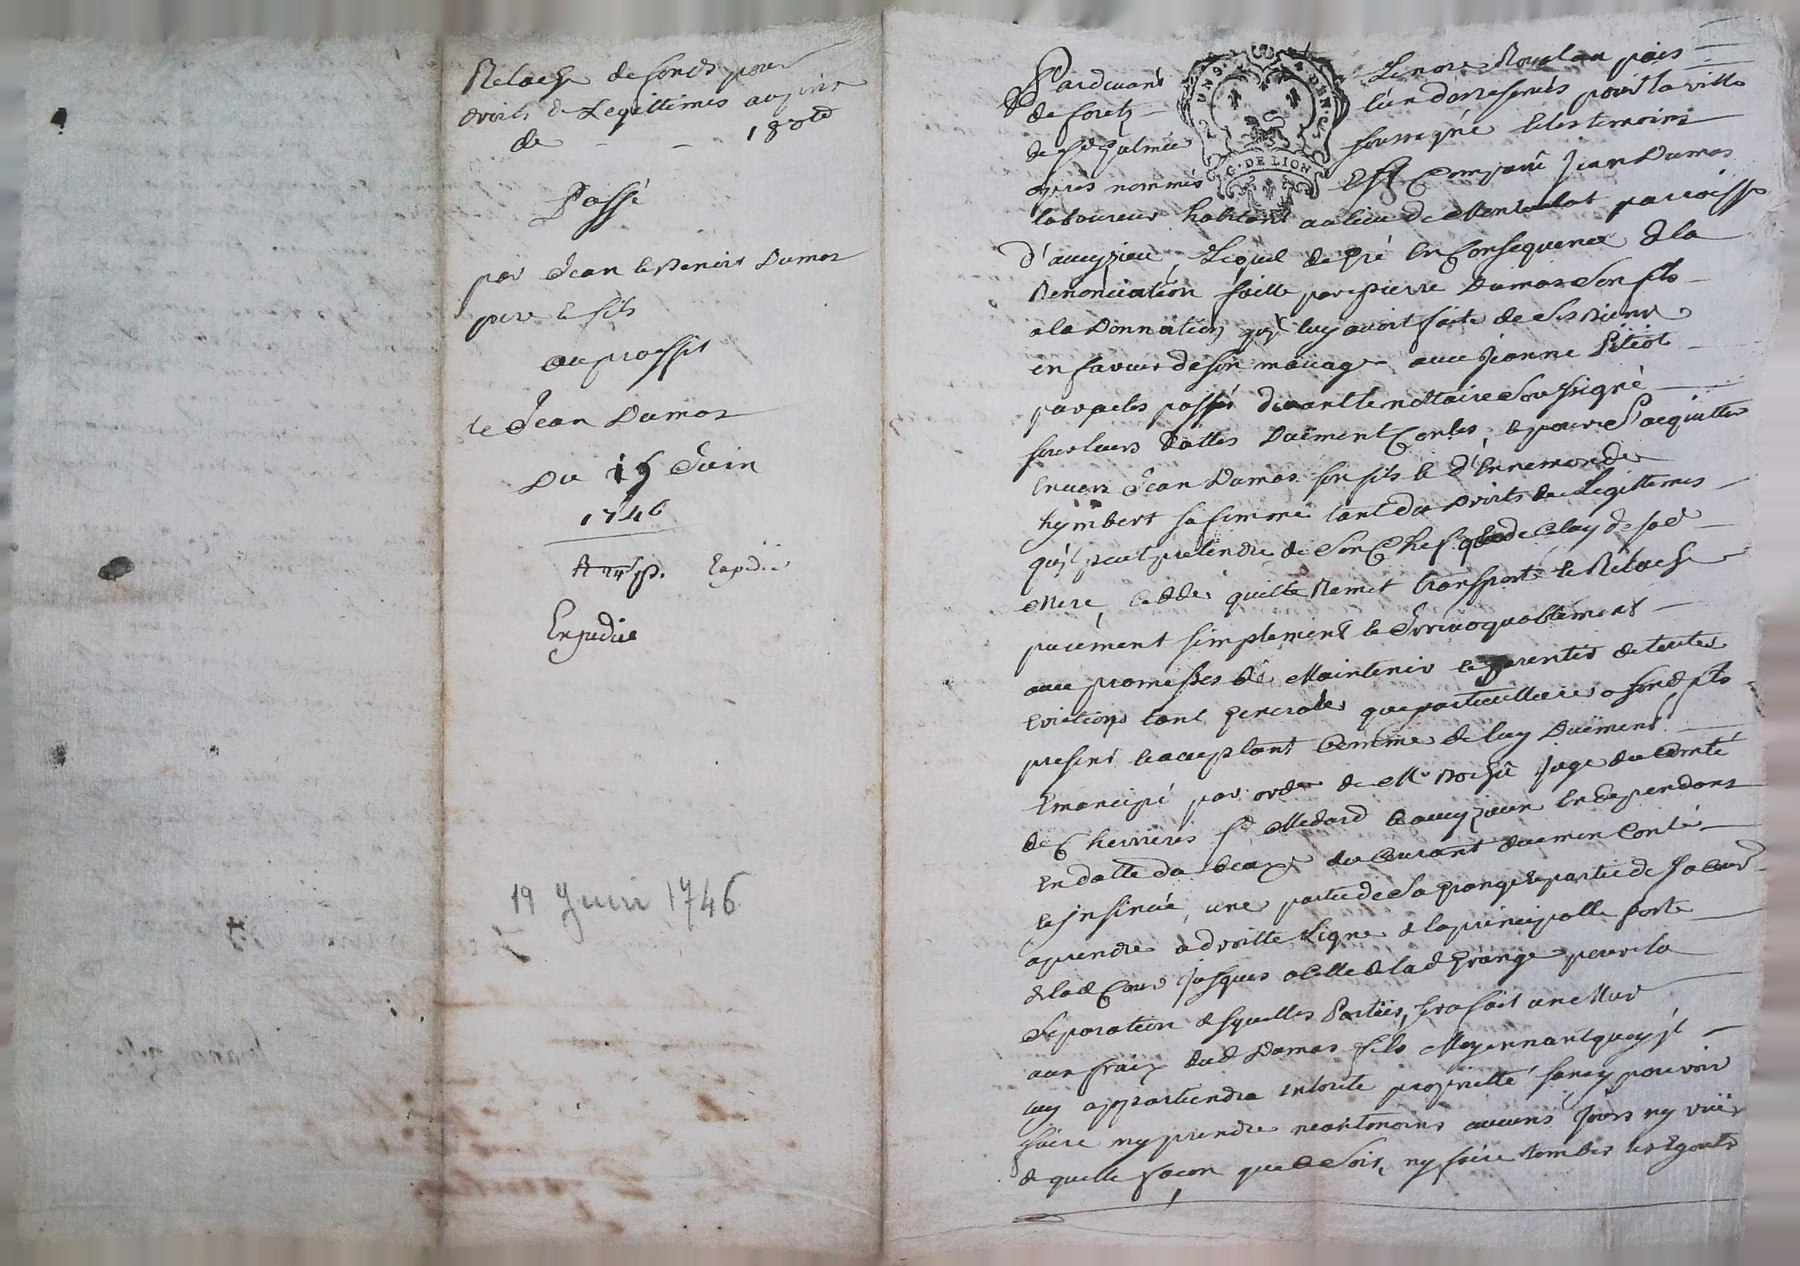 Relache de fonds pour
droits de Legittimes au prix
de - - 180 td
Passé
par Jean & Benoist Dumas
pere & fils
au proffit
de Jean Dumas
Du 19 Juin
1746
Expedié
Expedié
19 Juin 1746
Pardevant le no.re Royal au païs
de foretz - reservés pour la ville
de St Galmier soussigné & les temoins
apres nommés Est Comparû Jean Dumas
laboureur habitant au lieu de parroisse
d'aveyzieu, Lequel de gré En Consequence de la
Renonciation faitte par pierre Dumas son fils
a la Donnation qu'il luy avoit faite de ses Biens
en faveur de son mariage avec Jeanne
par actes passés devant le nottaire soussigné
sous leurs dattes Duëment Conlés, & pour s'acquitter
Envers Jean Dumas son fils & d'Ennemonde
hymbert sa femme tant des Droits de Legittimes
qu'il peut pretendre de son Chef que de Celuy de sad
Mere, Cedde, quitte Remet transporte & Relache
purement simplement & Irrevoquablement
avec promesses de Maintenir & garentir de toutes
Evictions tant generales que particullieres a sond fils
present & acceptant Comme de luy Duëment
Emancipé par ordre de Mr Juge du Comté
de Chevrieres St Medard & aveyzieux En dependans
En datte du du Courant duement Conlé
& Insinüé, une partie de sa grange & partie de sa Cour
a prendre a droitte Ligne de la principalle porte
de lad Cour Jusques a Celle de lad grange pour la
separation desquelles Parties, sera fait un Mur
aux fraix dud Dumas fils Moyennant quoy il
luy appartiendra en toute proprietté sans y pouvoir
faire ny prendre neantmoins aucuns Jours ny vuës
de quelle façon que ce soit, ny faire tomber les Egouts